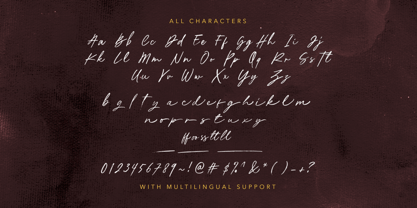 ALL CHARACTERS
Aa Bb Cc Dd Ee Ff Gg Hh Ii Jj
Kk Ll Mm Nn Oo Pp Qq Rr Ss Tt
Uu Vv Ww Xx Yy Zz
b g l t y a c d e r g h i k l m
n o p r s t u x y
ff or ss tt ll
0123456789~!@#$%^&*()-+?
WITH MULTILINGUAL SUPPORT